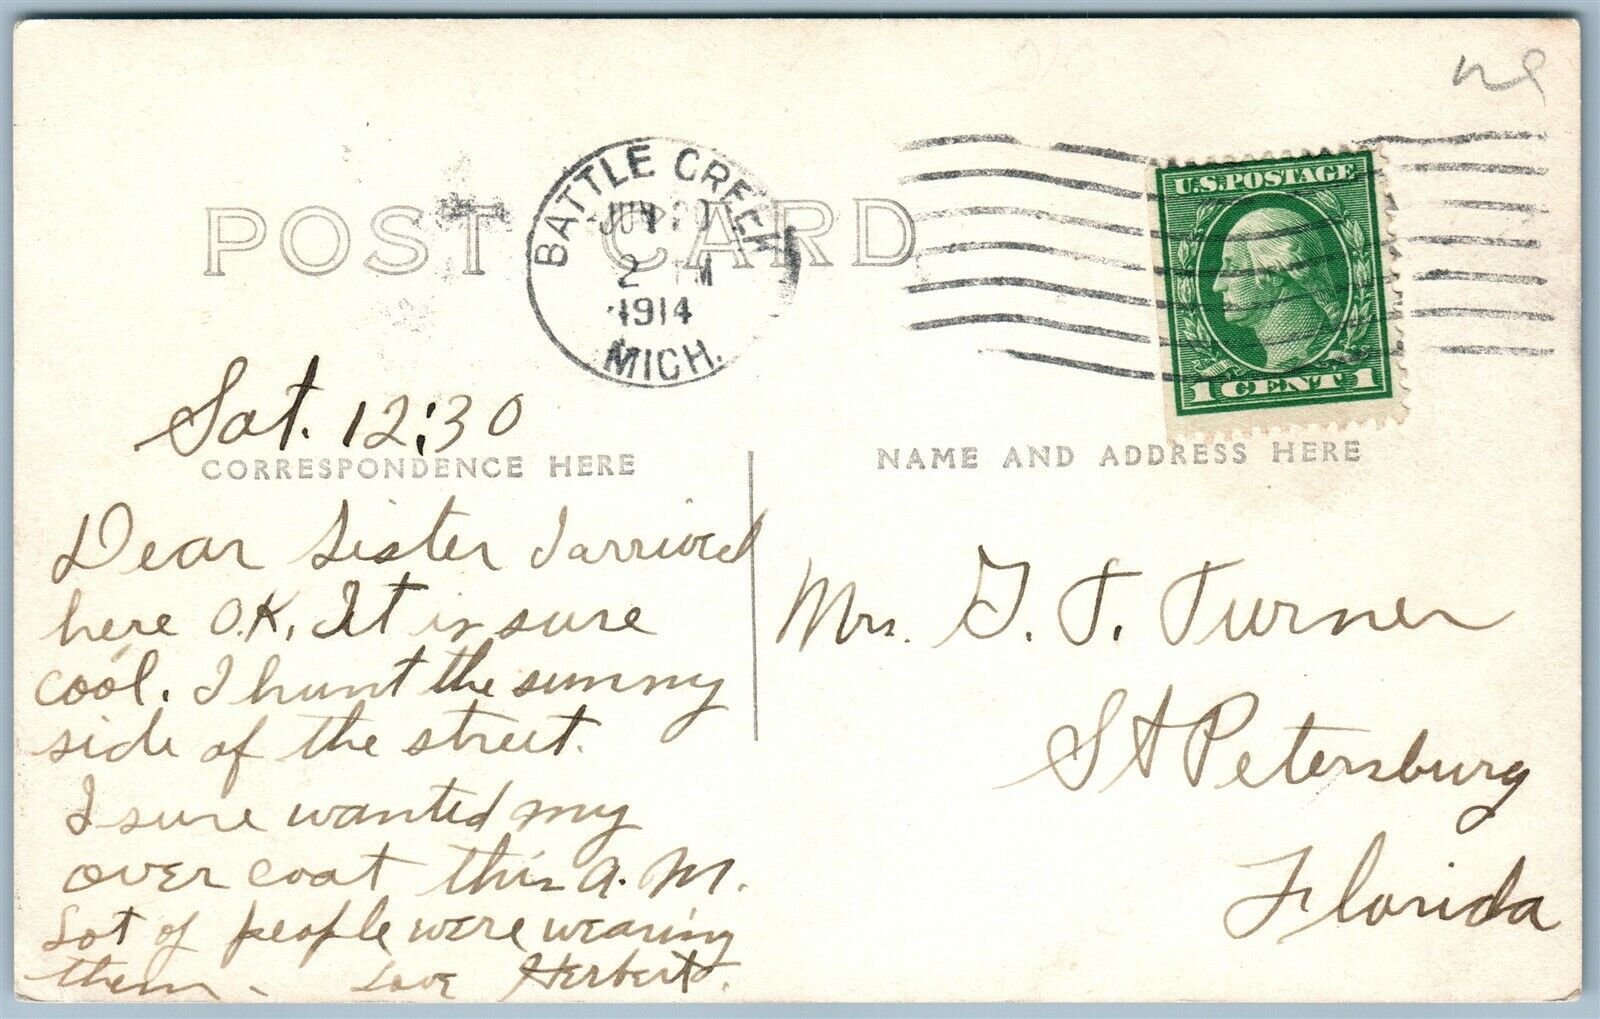 POST CARD
BATTLE CREEK
JUN 20
2 M
1914
MICH.
U.S. POSTAGE
1 CENT 1
Sat. 12:30
CORRESPONDENCE HERE
NAME AND ADDRESS HERE
Dear Sister I arrived
here O.K. It is sure
cool. I hunt the sunny
side of the street.
I sure wanted my
over coat this A.M.
Lot of people were wearing
them. Love Herbert.
Mrs. G. T. Turner
St Petersburg
Florida